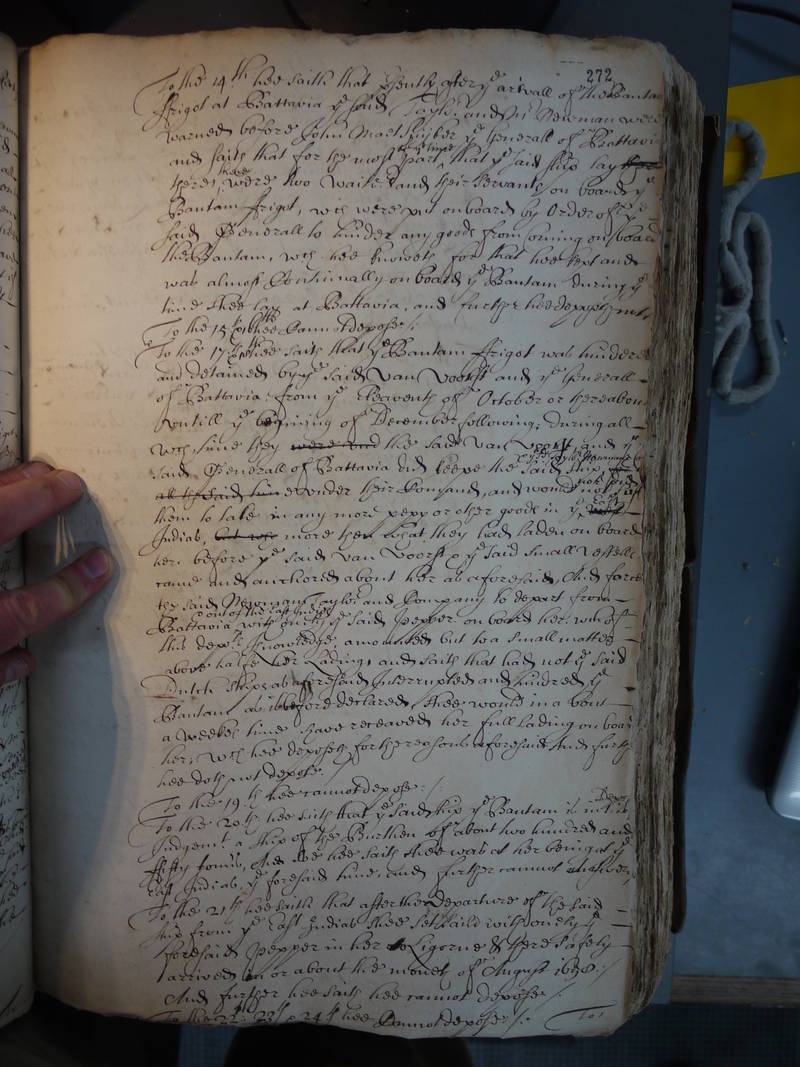 272
To the 14th hee saith that psently after ye arivall of the Bantam
ffrigot at Battavia ye said Taylor and Mr Newman were
warned before John Maetsuyker ye Generall of Battavia
and saith that for the most part that ye said ship lay
there, there were two Waiters and their Servants on board ye
Bantam ffrigot, wch were put on board by Order of ye
said Generall to hinder any goods from coming on board
the Bantam, wch hee knoweth for that hee kept and
was almost Continually on board ye Bantam during ye
time shee lay at Battavia, and further hee deposeth not.
To the 15th 16th hee Cannot depose /:
To the 17th hee saith that ye Bantam ffrigot was hindered
and detained by ye said Van Voorst and ye Generall
of Battavia from ye Eleaventh of October or thereabouts
untill ye begining of December following, during all
wch time they were and the said Van Voorst and ye
said Generall of Battavia did keepe the said ship
all the said time under their Comand, and would not
them to take in any more pepper or other goods in ye
Indias, but more then what they had laden on board
her before ye said Van Voorst & ye said small Vessells
came and anchored about her as aforesaid, And forced
the said Newman Taylor and Company to depart from
out of the East Indies
Battavia with onely ye said Pepper on board her, wch of
this depts knowledge amounted but to a small matter
above halfe her Lading, and saith that had not ye said
Dutch ships as aforesaid Interrupted and hindred ye
Bantam as is before declared, shee would in about
a weekes time have receaved her full lading on board
her, wch hee deposeth for the reasons aforesaid And further
hee doth not depose /
To the 19th hee cannot depose /:
To the 20th hee saith that ye said ship ye Bantam is in this Depts
Judgemt a ship of the Burthen of about two hundred and
ffifty tonns, And hee saith shee was at her being at ye
East Indias ye foresaid time, and further cannot answer,
To the 21th hee saith that after the departure of the said
ship from ye East Indias shee set saile with onely ye
foresaid Pepper in her to Ligorne & there safely
arrived in or about the moneth of August 1650 :/
And further hee saith hee cannot depose /:
To the 22th 23th & 24th hee Cannot depose /:
To: